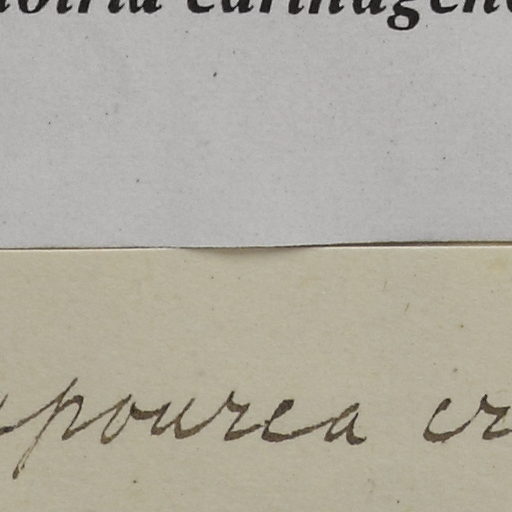 hotria carthagene
apourea cr